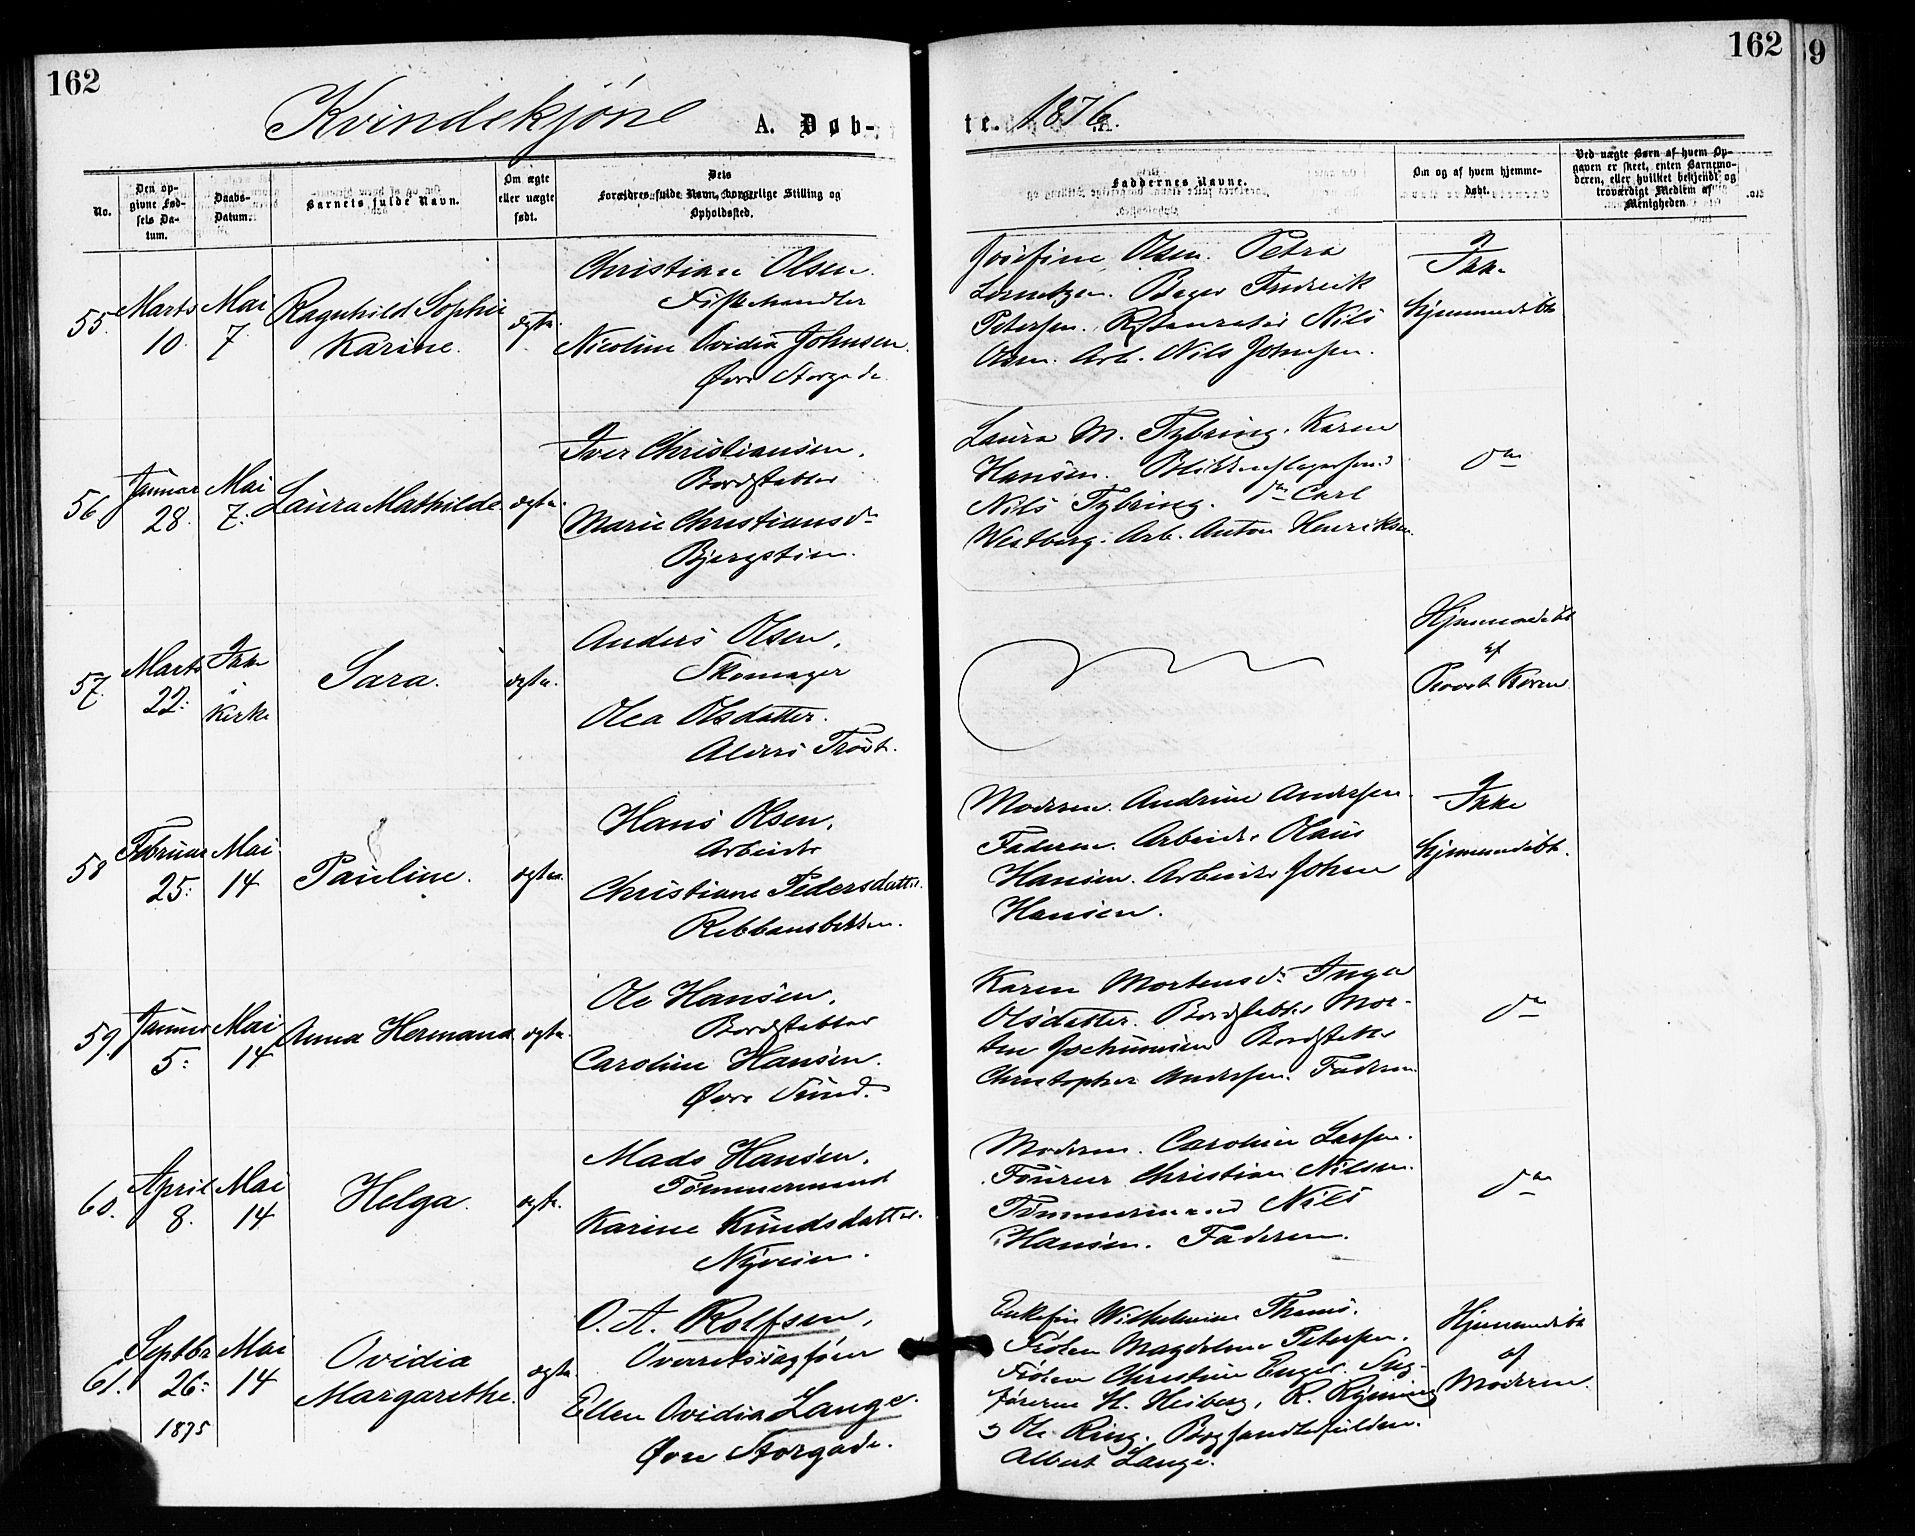 162
162
9
Kvindekjøn A. Døb-
te. 1876.
No.
Den opgivne Fødsels Datum.
Daabs-Datum.
Barnets fulde Navn.
Om ægte eller uægte født.
Dets Forældres fulde Navn, borgerlige Stilling og Opholdssted.
Faddernes Navne.
Om og af hvem hjemmedøbt.
Ved uægte Børn af hvem Opgaven er skeet, enten Barnemoderen, eller hvilket bekjendt og troværdigt Medlem af Menigheden
55.
Marts
10.
Mai
7.
Ragnhild Sophie
Karine.
ægte.
Christian Olsen.
Fiskehandler
Nicoline Ovidia Johnsen.
Øvre Storgade.
Josefine Olsen. Petra
Lorentzen. Bager Fredrik
Petersen. Restauratør Nils
Olsen. Arb. Nils Johnsen.
Ikke
hjemmedøbt
56
Januar
28.
Mai
7.
Laura Mathilde
ægte.
Iver Christiansen.
Bordstabler
Marie Christiansdr
Bjergstien.
Laura M. Tybring. Karen
Hansen. Blikkenslagersvend
Nils Tybring. do Carl
Westberg. Arb. Anton Henriksen.
do
57.
Marts
22.
Ikke
i
Kirke
Sara.
ægte.
Anders Olsen.
Skomager
Olea Olsdatter.
Alders Trøst.
Hjemmedøbt
af
Provst Koren
58
Februar
25.
Mai
14
Pauline.
ægte.
Hans Olsen.
Arbeider
Christiane Pedersdatter.
Rebbansbakken.
Moderen. Andrine Andersen.
Faderen. Arbeider Olaus
Hansen. Arbeider Johan
Hansen.
Ikke
hjemmedøbt.
59.
Januar
5.
Mai
14
Anna Hermana
ægte.
Ole Hansen.
Bordstabler
Caroline Hansen.
Øvre Sund.
Karen Mortensdr Inga
Olsdatter. Bordstabler Mor-
ten Jochumsen Bordstabler
Christopher Andersen. Faderen
do
60.
April
8.
Mai
14
Helga.
ægte.
Mads Hansen.
Tømmermand
Karine Knudsdatter.
Nyveien.
Moderen. Caroline Larsen.
Fourer Christian Nilsen.
Tømmermand Nils
Hansen. Faderen.
do
61.
Septbr
26.
1875
Mai
14
Ovidia
Margarethe.
ægte
O. A. Rolfsen,
Overretssagfører
Ellen Ovidia Lange.
Øvre Storgade.
Enkefru Wilhelmine Thams.
Frøken Magdalene Petersen.
Frøken Christine Enger. Sag-
førerne H. Heiberg, R. Rynning
& Ole Ring. Boghandlerfuldm.
Albert Lange.
Hjemmedøbt
af
Moderen.